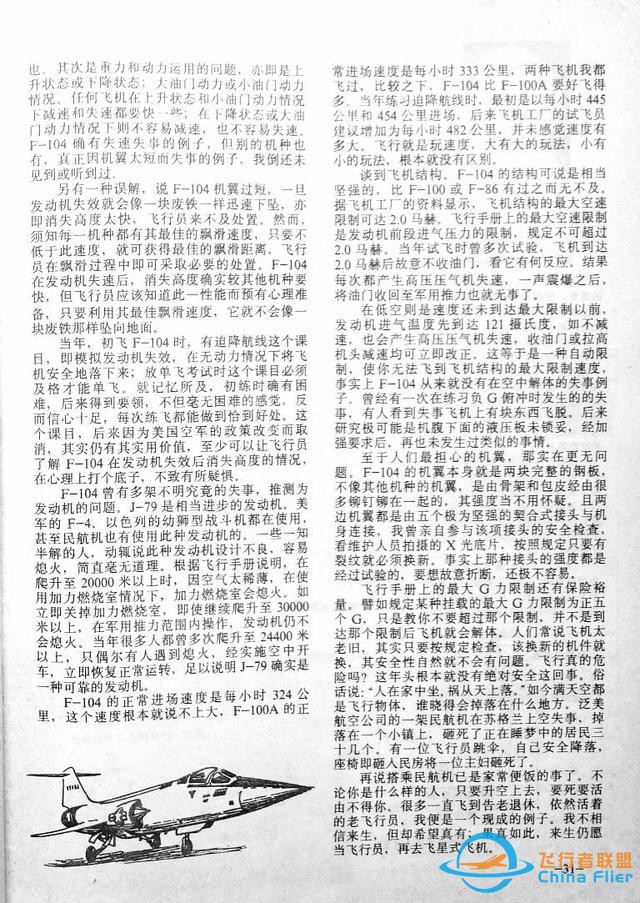 也。其次是重力和动力运用的问题，亦即是上
升状态或下降状态；大油门动力或小油门动力
情况。任何飞机在上升状态和小油门动力情况
下减速和失速都要快一些；在下降状态或大油
门动力情况下则不容易减速，也不容易失速。
F-104 确有失速失事的例子，但别的机种也
有，真正因机翼太短而失事的例子，我倒还未
见到或听到过。
另有一种误解，说 F-104 机翼过短，一旦
发动机失效就会像一块废铁一样迅速下坠，亦
即消失高度太快，飞行员来不及处置。然而，
须知每一机种都有其最佳的飘滑速度，只要不
低于此速度，就可获得最佳的飘滑距离，飞行
员在飘滑过程中即可采取必要的处置。F-104
在发动机失速后，消失高度确实较其他机种要
快，但飞行员应该知道此一性能而预有心理准
备，只要利用其最佳飘滑速度，它就不会像一
块废铁那样坠向地面。
当年，初飞 F-104 时，有迫降航线这个课
目，即模拟发动机失效，在无动力情况下将飞
机安全地落下来；放单飞考试时这个课目必须
及格才能单飞。就记忆所及，初练时确有困
难，后来得到要领，不但毫无困难的感觉，反
而信心十足，每次练飞都能做到恰到好处。这
个课目，后来因为美国空军的政策改变而取
消，其实仍有其实用价值，至少可以让飞行员
了解 F-104 在发动机失效后消失高度的情况，
在心理上打个底子，不致有所疑惧。
F-104 曾有多架不明究竟的失事，推测为
发动机的问题。J-79 是相当进步的发动机。美
军的 F-4、以色列的幼狮型战斗机都在使用，
甚至民航机也有使用此种发动机的。一些一知
半解的人，动辄说此种发动机设计不良，容易
熄火，简直毫无道理。根据飞行手册说明，在
爬升至 20000 米以上时，因空气太稀薄，在使
用加力燃烧室情况下，加力燃烧室会熄火。如
立即关掉加力燃烧室，即使继续爬升至 30000
米以上，在军用推力范围内操作，发动机仍不
会熄火。当年很多人都曾多次爬升至 24400 米
以上，只偶尔有人遇到熄火，经实施空中开
车，立即恢复正常运转，足以说明 J-79 确实是
一种可靠的发动机。
F-104 的正常进场速度是每小时 324 公
里，这个速度根本就说不上大，F-100A 的正
常进场速度是每小时 333 公里，两种飞机我都
飞过，比较之下，F-104 比 F-100A 要好飞得
多。当年练习迫降航线时，最初是以每小时 445
公里和 454 公里进场，后来飞机工厂的试飞员
建议增加为每小时 482 公里，并未感觉速度有
多大。飞行就是玩速度，大有大的玩法，小有
小的玩法，根本就没有区别。
谈到飞机结构。F-104 的结构可说是相当
坚强的，比 F-100 或 F-86 有过之而无不及。
据飞机工厂的资料显示，飞机结构的最大空速
限制可达 2.0 马赫。飞行手册上的最大空速限制
是发动机前段进气压力的限制，规定不可超过
2.0 马赫。当年试飞时曾多次试验，飞机到达
2.0 马赫后故意不收油门，看它有何反应。结果
每次都产生高压压气机失速，一声震爆之后，
将油门收回至军用推力也就无事了。
在低空则是速度还未到达最大限制以前，
发动机进气温度先到达 121 摄氏度，如不减
速，也会产生高压压气机失速，收油门或拉高
机头减速均可立即改正。这等于是一种自动限
制，使你无法飞到飞机结构的最大限制速度，
事实上 F-104 从来就没有在空中解体的失事例
子。曾经有一次在练习负 G 俯冲时发生的的失
事，有人看到失事飞机上有块东西飞脱。后来
研究极可能是机腹下面的液压板未锁妥，经加
强要求后，再也未发生过类似的事情。
至于人们最担心的机翼，那实在更无问
题。F-104 的机翼本身就是两块完整的钢板，
不像其他机种的机翼，是由骨架和包皮经由很
多铆钉铆在一起的，其强度当不用怀疑。且两
边机翼都是由五个极为坚强的契合式接头与机
身连接，我曾亲自参与该项接头的安全检查，
看维护人员拍摄的 X 光底片，按照规定只要有
裂纹就必须换新。事实上那种接头的强度都是
经过试验的，要想故意折断，还极不容易。
飞行手册上的最大 G 力限制还有保险裕
量。譬如规定某种挂载的最大 G 力限制为正五
个 G，只是教你不要超过那个限制，并不是到
达那个限制后飞机就会解体。人们常说飞机太
老旧，其实只要按规定检查，该换新的机件就
换，其安全性自然就不会有问题。飞行真的危
险吗？这年头根本就没有绝对安全这回事。俗
话说：“人在家中坐，祸从天上落。”如今满天空都
是飞行物体，谁晓得会掉落在什么地方。泛美
航空公司的一架民航机在苏格兰上空失事，掉
落在一个小镇上，砸死了正在睡梦中的居民三
十几个。有一位飞行员跳伞，自己安全降落，
座椅却砸入民房将一位主妇砸死了。
再说搭乘民航机已是家常便饭的事了。不
论你是什么样的人，只要升空上去，要死要活
由不得你。很多一直飞到告老退休，依然活着
的老飞行员，我便是一个现成的例子。我不相
信来生，但却希望真有；果真如此，来生仍愿
当飞行员，再去飞星式飞机。
-31-
飞行者联盟
China Flier